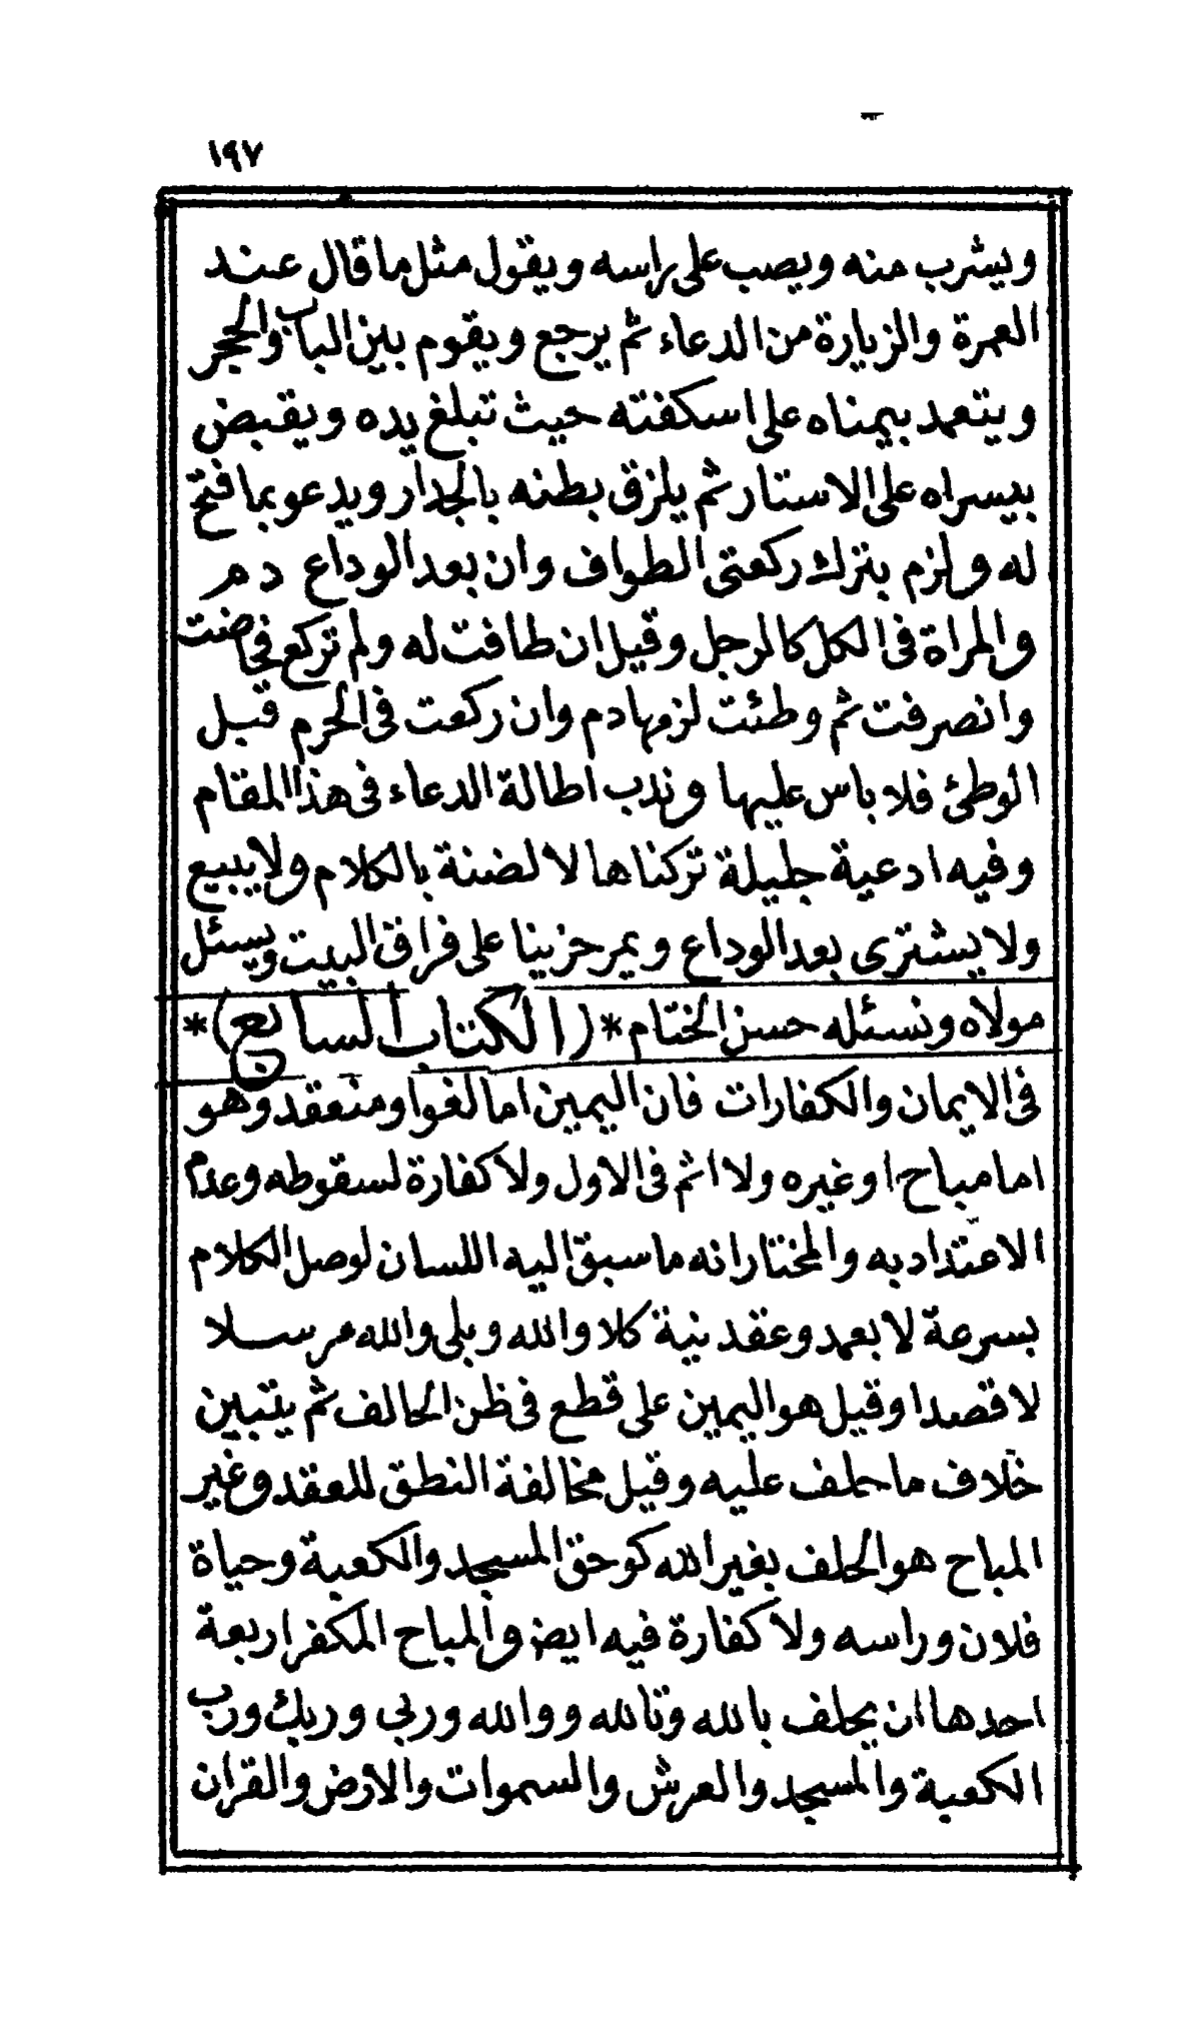 ١٩٧
ويشرب منه ويصب على راسه ويقول مثل ما قال عند
العمرة والزيارة من الدعاء ثم يرجع ويقوم بين الباب والحجر
ويتعمد بيمناه على اسكفته حيث تبلغ يده ويقبض
بيسراه على الاستار ثم يلزق بطنه بالجدار ويدعو بما فتح
له ولزم بترك ركعتى الطواف وان بعد الوداع دم
والمراة فى الكل كالرجل وقيل ان طافت له ولم تركع فحاضت
وانصرفت ثم وطئت لزمها دم وان ركعت فى الحرم قبل
الوطئ فلا باس عليها وندب اطالة الدعاء فى هذا المقام
وفيه ادعية جليلة تركناها لا لضنة بالكلام ولا يبيع
ولا يشترى بعد الوداع ويمر حزينا على فراق البيت ويسئل
مولاه ونسئله حسن الختام *(الكتاب السابع)*
فى الايمان والكفارات فان اليمين اما لغو او منعقد وهو
اما مباح او غيره ولا اثم فى الاول ولا كفارة لسقوطه وعدم
الاعتداد به والمختار انه ما سبق اليه اللسان لوصل الكلام
بسرعة لا بعمد وعقد نية كلا والله وبلى والله مرسلا
لا قصدا وقيل هو اليمين على قطع فى ظن الحالف ثم يتبين
خلاف ما حلف عليه وقيل مخالفة النطق للعقد وغير
المباح هو الحلف بغير الله كوحق المسجد والكعبة وحياة
فلان وراسه ولا كفارة فيه ايض والمباح المكفر اربعة
احدها ان يحلف بالله وتالله ووالله وربى وربك ورب
الكعبة والمسجد والعرش والسموات والارض والقران